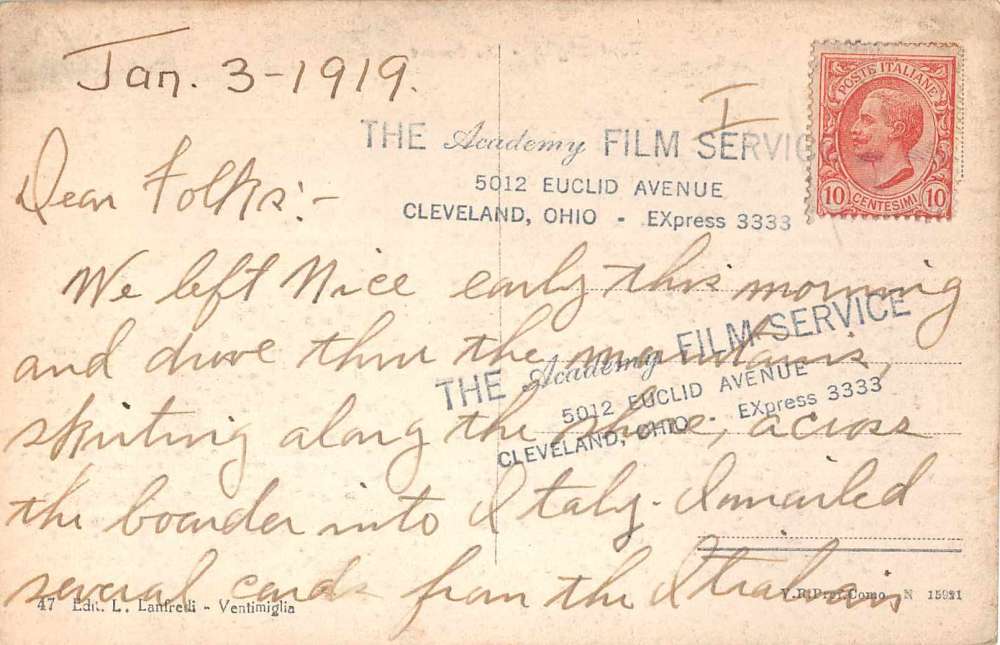 Jan. 3-1919.
I
POSTE ITALIANE
10 CENTESIMI 10
THE Academy FILM SERVIC
5012 EUCLID AVENUE
CLEVELAND, OHIO - EXpress 3333
Dear Folks:-
We left Nice early this morning
and drove thru the mountains,
THE Academy FILM SERVICE
5012 EUCLID AVENUE
CLEVELAND, OHIO - EXpress 3333
skirting along the shore, across
the boarder into Italy. I mailed
several cards from the Italian
47 Edit. L. Lanfredi - Ventimiglia
Como N